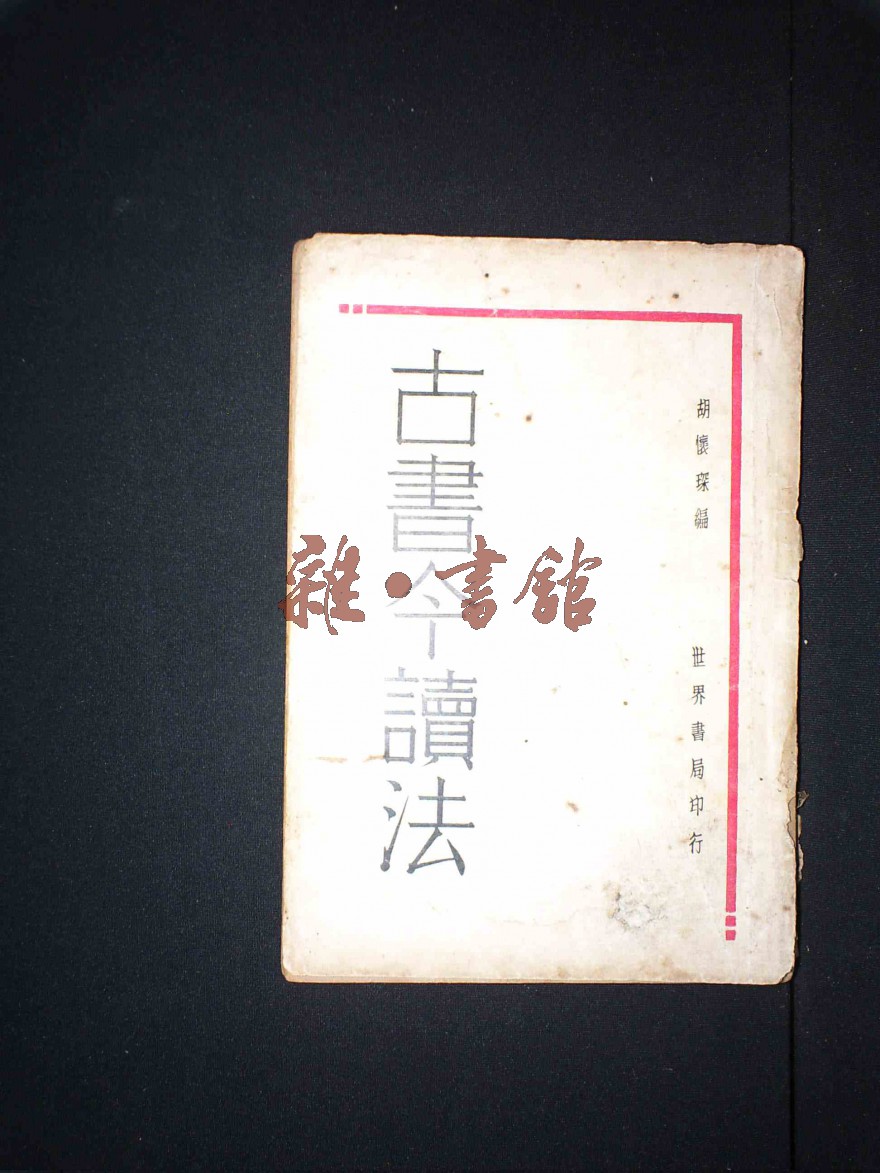 胡懷琛編
世界書局印行
古書今讀法
雜·書館